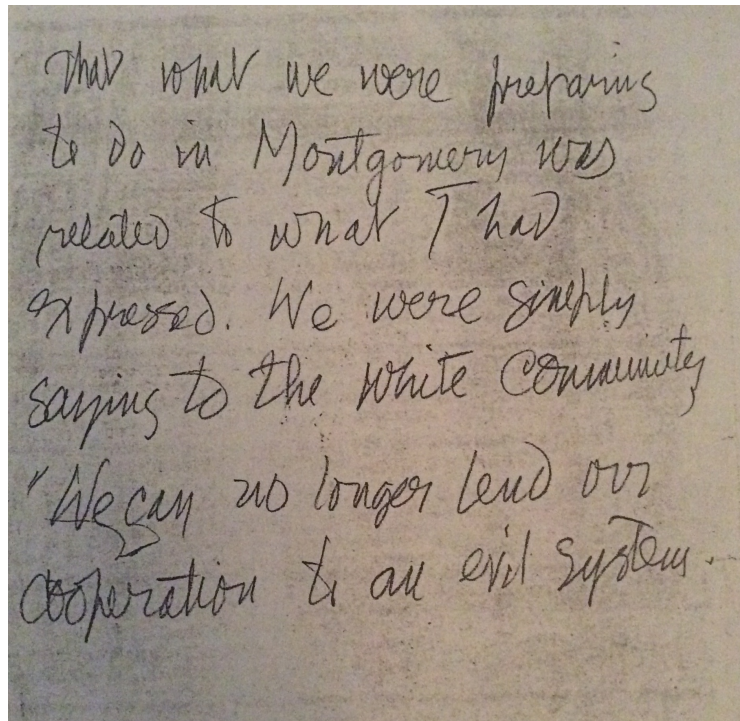 That what we were preparing
to do in Montgomery was
related to what I had
expressed. We were simply
saying to the white community
"We can no longer lend our
cooperation to an evil system.